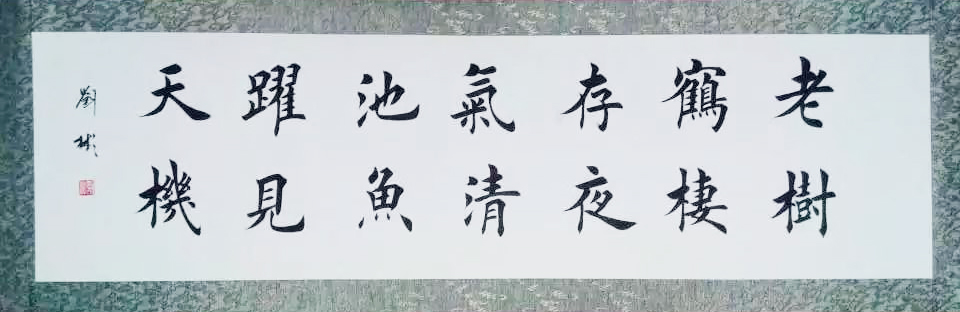 老樹
鶴棲
存夜
氣清
池魚
躍見
天機
劉彬